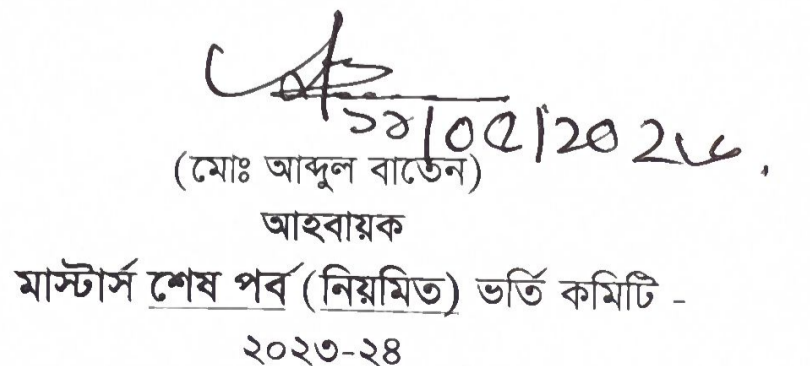 (মোঃ আব্দুল বাতেন)
আহবায়ক
মাস্টার্স শেষ পর্ব (নিয়মিত) ভর্তি কমিটি -
২০২৩-২৪